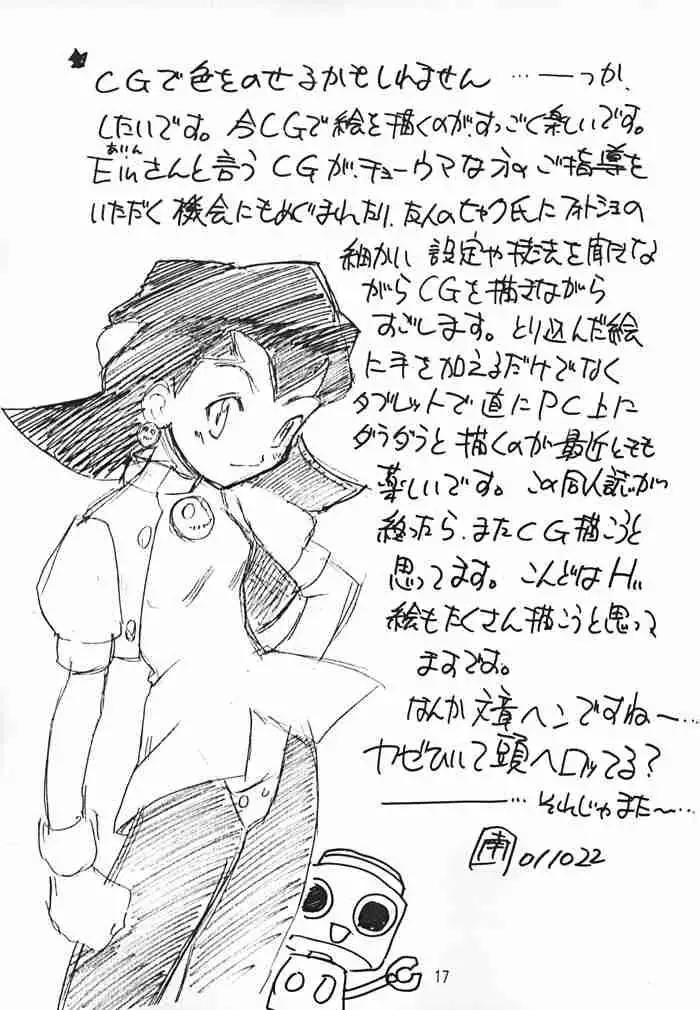 CGで色をのせるかもしれません …―っか、
したいです。今CGで絵を描くのが、すっごく楽しいです。
あいん
Einさんと言う CGが、チョーウマな方の ご指導を
いただく 機会にもめぐまれたり、友人のセャク氏にフォトショの
細かい 設定や技法を聞きな
がらCGを描きながら
すごします。とり込んだ絵
に手を加えるだけでなく
タブレットで直にPC上に
ダラダラと描くのが最近とても
楽しいです。この同人誌が
終ったら、またCG描こうと
思ってます。こんどはH
絵もたくさん描こうと思って
ますです。
なんか文章ヘンですねー…
カゼひいて頭ヘロってる?
―…それじゃまた〜…
南 011022
17